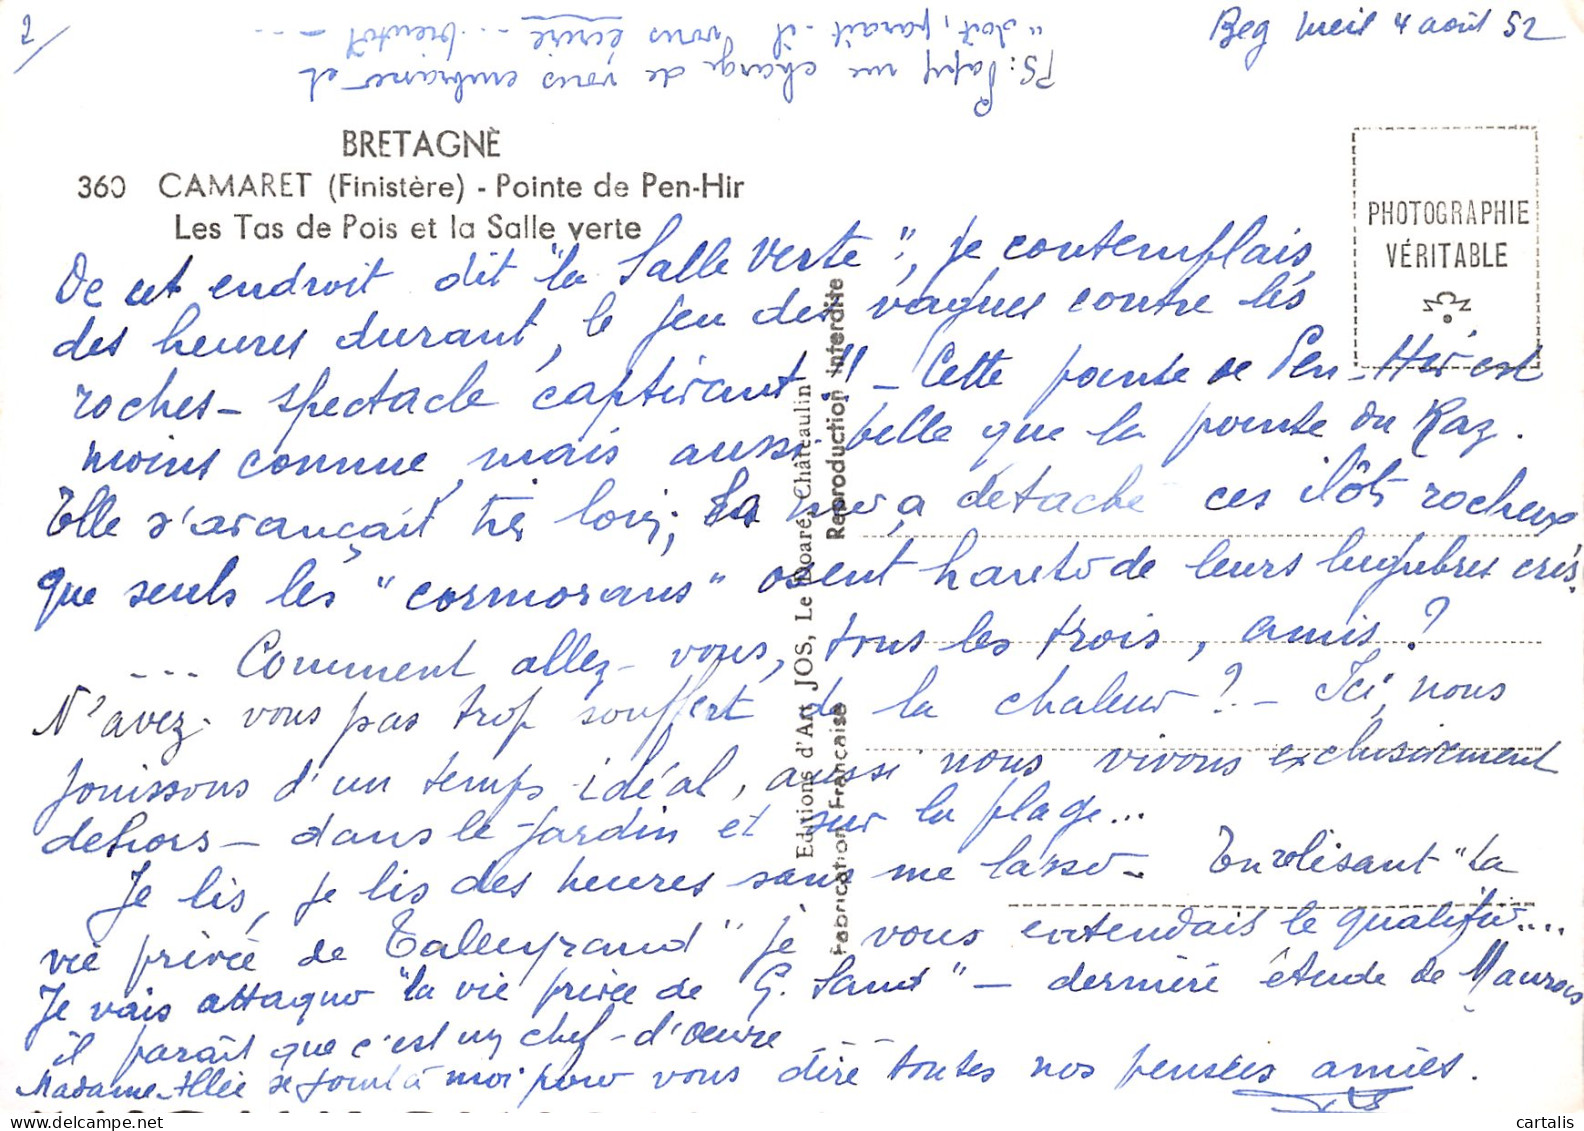 Beg Meil 4 août 52
PS: Papy me charge de vous embrasser et
"doit, paraît-il vous écrire... bientôt ---
BRETAGNE
360 CAMARET (Finistère) - Pointe de Pen-Hir
Les Tas de Pois et la Salle verte
PHOTOGRAPHIE
VÉRITABLE
De cet endroit dit "la Salle Verte", je contemplais,
des heures durant, le jeu des vagues contre les
roches - spectacle captivant!! - Cette pointe de Pen-Hir est
moins connue, mais aussi belle que la pointe du Raz.
Elle s'avançait très loin; La mer a détaché ces îlots rocheux
que seuls les "cormorans" osent hanter de leurs lugubres cris.
--- Comment allez-vous, tous les trois, amis?
N'avez-vous pas trop souffert de la chaleur? - Ici, nous
jouissons d'un temps idéal, aussi nous vivons exclusivement
dehors - dans le jardin et sur la plage...
Je lis, je lis des heures sans me lasser - En lisant "La
vie privée de Talleyrand" je vous entendais le qualifier....
Je vais attaquer "la vie privée de G. Sand" - dernière étude de Maurois
il paraît que c'est un chef-d'œuvre
Madame Allée se joint à moi pour vous dire toutes nos pensées amies.
Editions d'Art JOS, Le Doaré, Châteaulin
Fabrication Française Reproduction Interdite
cartalis